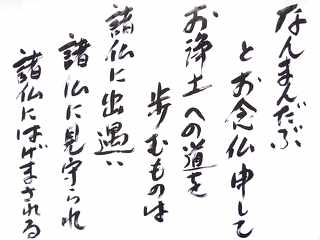 なんまんだぶ
とお念仏申して
お浄土への道を
歩むものは
諸仏に出遇い
諸仏に見守られ
諸仏にはげまされる